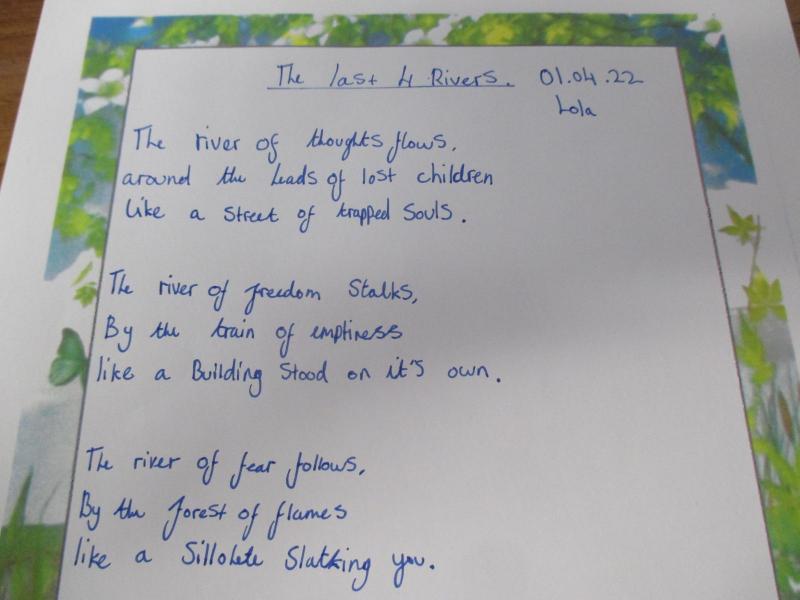 The last 4 Rivers. 01.04.22
Lola
The river of thoughts flows,
around the heads of lost children
like a Street of trapped Souls.
The river of freedom Stalks,
By the train of emptiness
like a Building Stood on it's own.
The river of fear follows,
By the forest of flames
like a Sillolete Slatking you.